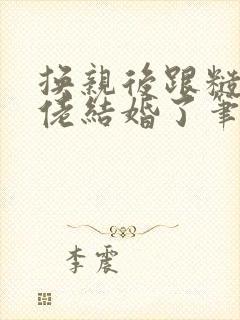 換親後跟糙
佬結婚了筆
李震